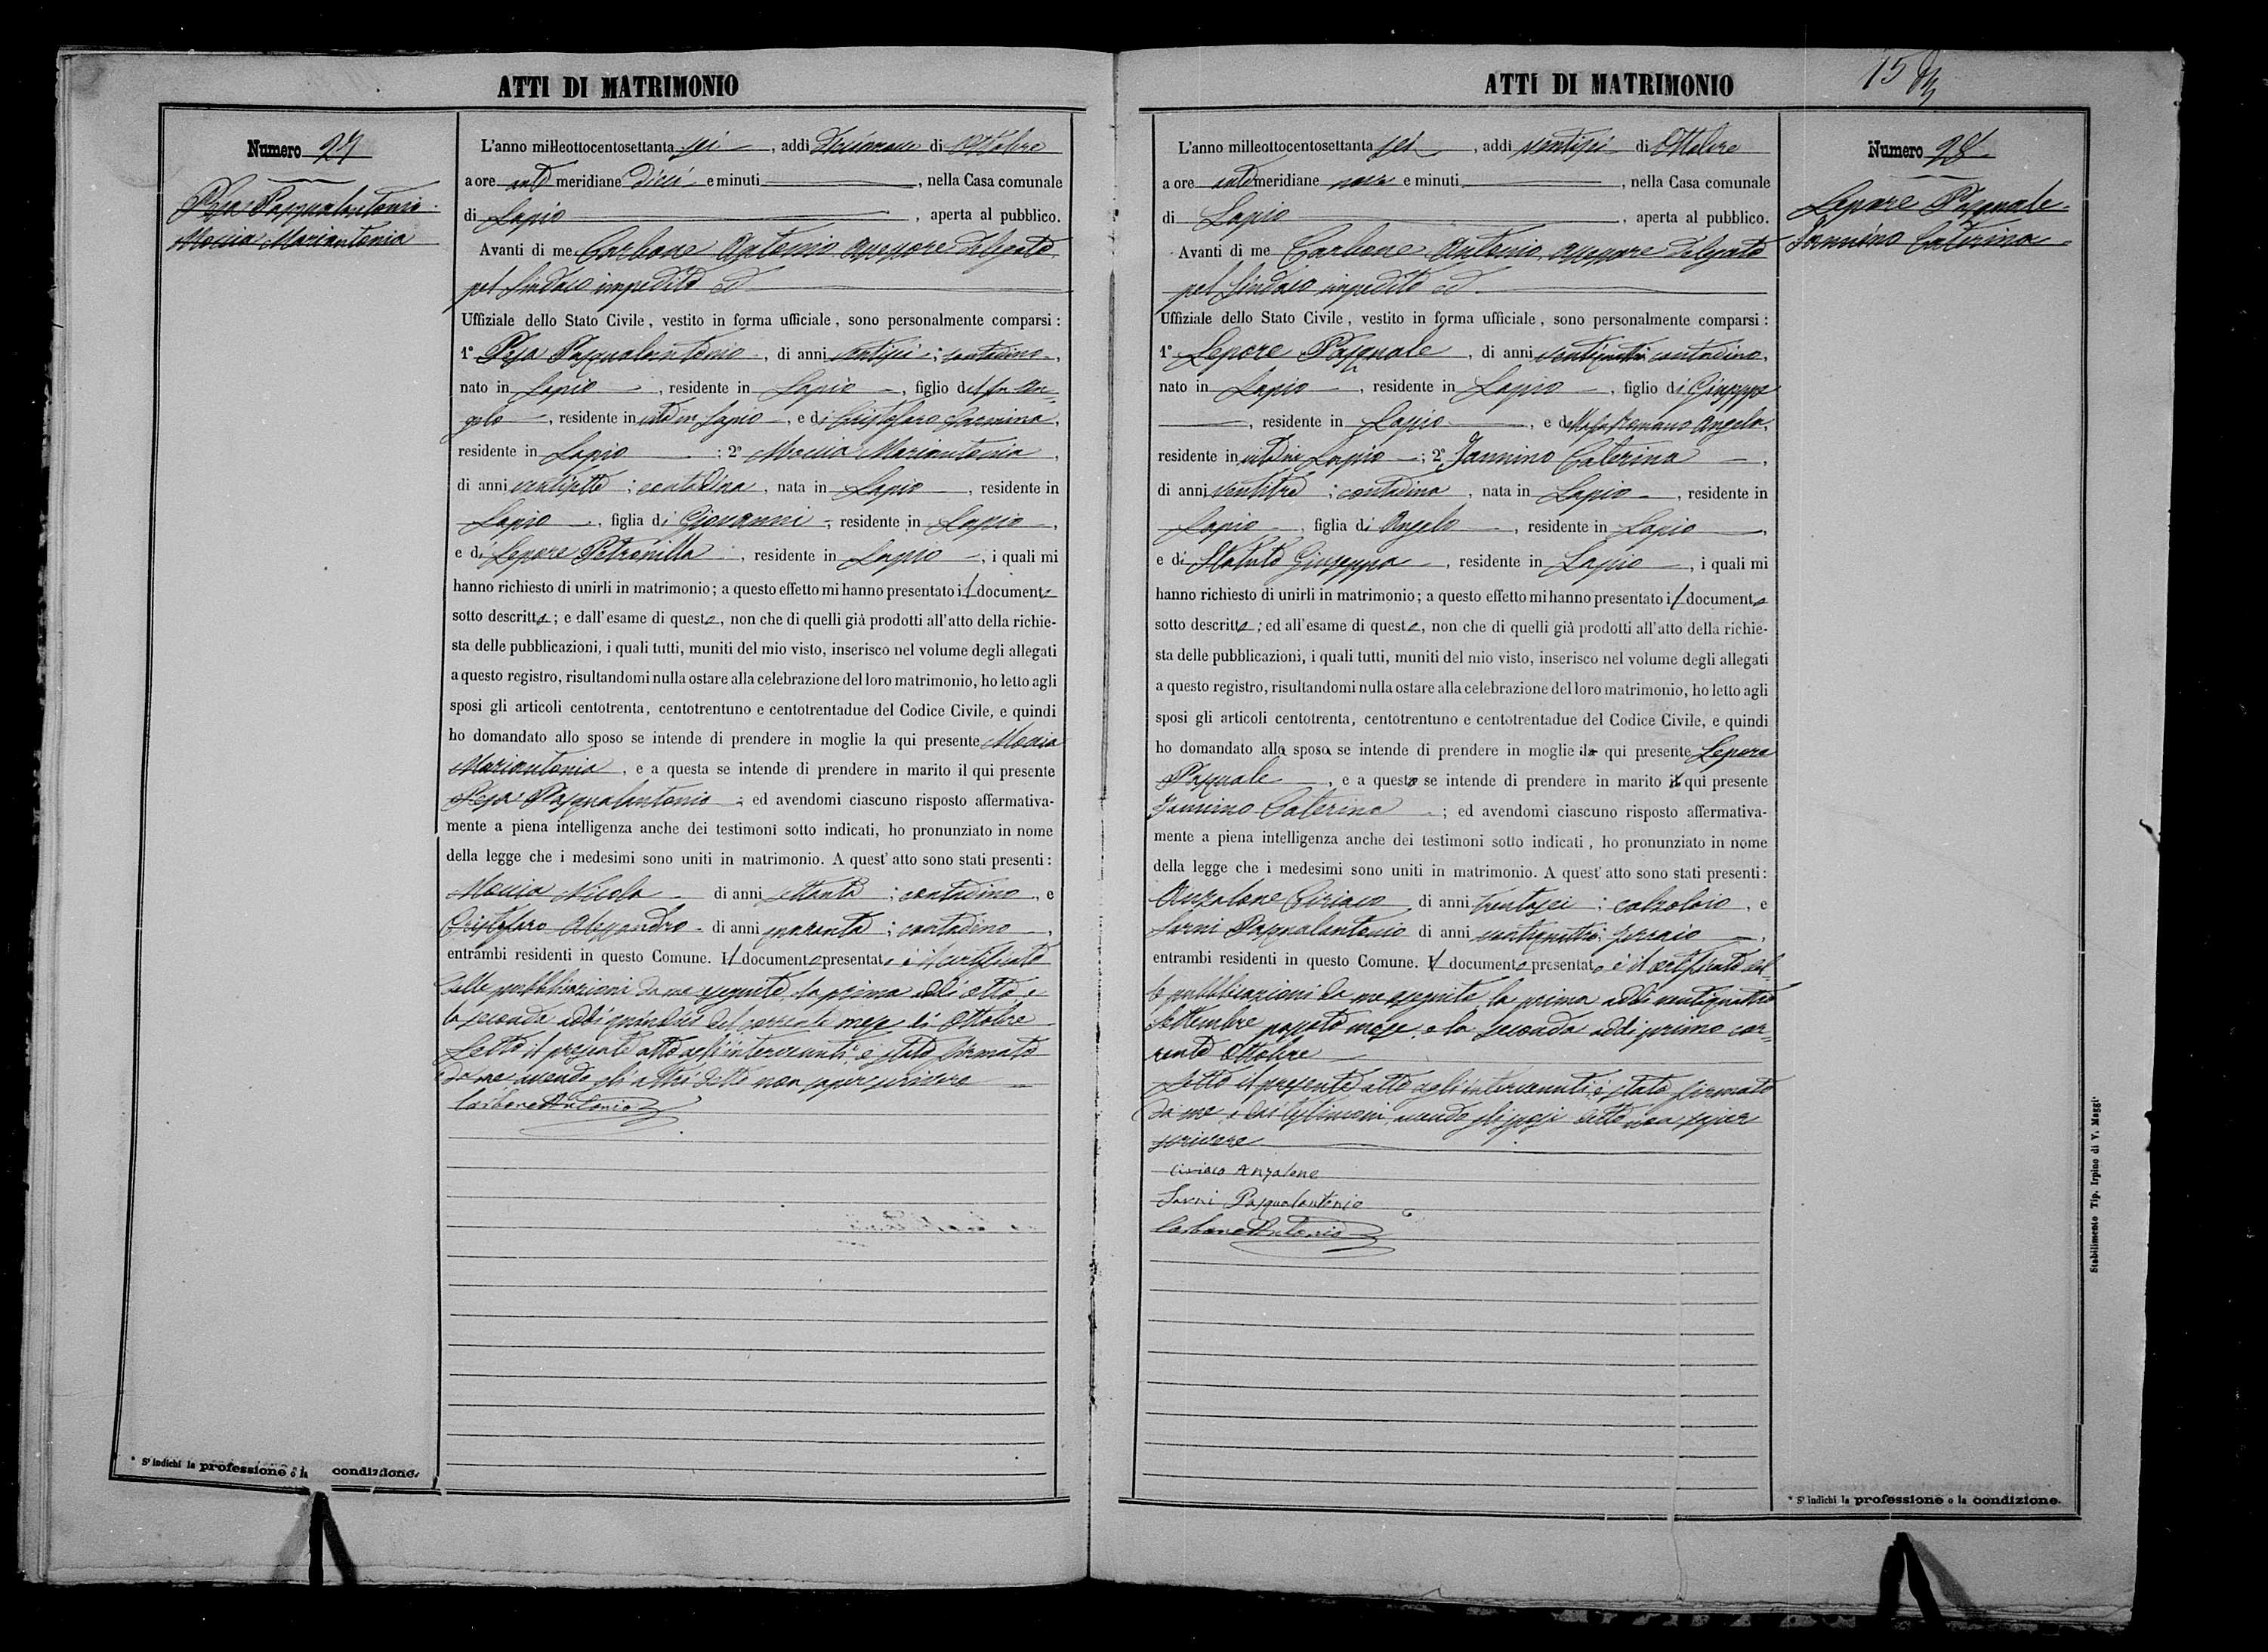 ATTI DI MATRIMONIO
Numero 27
Pesa Pasqualantonio
Moccia Mariantonia
L'anno milleottocentosettanta sei, addì diecinove di Ottobre
a ore anti meridiane dieci e minuti, nella Casa comunale
di Lapio, aperta al pubblico.
Avanti di me Carbone Antonio Assessore delegato
pel Sindaco impedito ed
Uffiziale dello Stato Civile, vestito in forma ufficiale, sono personalmente comparsi:
1° Pesa Pasqualantonio, di anni ventisei; contadino,
nato in Lapio, residente in Lapio, figlio del fu An-
gelo, residente in vita in Lapio, e di Cristofaro Carmina,
residente in Lapio; 2° Moccia Mariantonia,
di anni ventisette; contadina, nata in Lapio, residente in
Lapio, figlia di Giovanni, residente in Lapio,
e di Lepore Petronilla, residente in Lapio, i quali mi
hanno richiesto di unirli in matrimonio; a questo effetto mi hanno presentato il documento
sotto descritto; e dall'esame di questo, non che di quelli già prodotti all'atto della richie-
sta delle pubblicazioni, i quali tutti, muniti del mio visto, inserisco nel volume degli allegati
a questo registro, risultandomi nulla ostare alla celebrazione del loro matrimonio, ho letto agli
sposi gli articoli centotrenta, centotrentuno e centotrentadue del Codice Civile, e quindi
ho domandato allo sposo se intende di prendere in moglie la qui presente Moccia
Mariantonia, e a questa se intende di prendere in marito il qui presente
Pesa Pasqualantonio; ed avendomi ciascuno risposto affermativa-
mente a piena intelligenza anche dei testimoni sotto indicati, ho pronunziato in nome
della legge che i medesimi sono uniti in matrimonio. A quest'atto sono stati presenti:
Moccia Nicola di anni settanta; contadino, e
Cristofaro Alessandro di anni quaranta; contadino,
entrambi residenti in questo Comune. Il documento presentato è il certificato
delle pubblicazioni da me eseguite, la prima addì otto, e
la seconda addì quindici del corrente mese di Ottobre
Letto il presente atto agl'intervenuti è stato firmato
da me avendo gli altri detto non saper scrivere
Carbone Antonio
* S'indichi la professione o la condizione.
ATTI DI MATRIMONIO
15
Numero 28
Lepore Pasquale
Jannino Caterina
L'anno milleottocentosettanta sei, addì ventisei di Ottobre
a ore anti meridiane nove e minuti, nella Casa comunale
di Lapio, aperta al pubblico.
Avanti di me Carbone Antonio, Assessore delegato
pel Sindaco impedito ed
Uffiziale dello Stato Civile, vestito in forma ufficiale, sono personalmente comparsi:
1° Lepore Pasquale, di anni ventiquattro contadino,
nato in Lapio, residente in Lapio, figlio di Giuseppe
, residente in Lapio, e della fu Romano Angela,
residente in vita in Lapio; 2° Jannino Caterina,
di anni ventitre; contadina, nata in Lapio, residente in
Lapio, figlia di Angelo, residente in Lapio,
e di Statuto Giuseppa, residente in Lapio, i quali mi
hanno richiesto di unirli in matrimonio; a questo effetto mi hanno presentato il documento
sotto descritto; ed all'esame di questo, non che di quelli già prodotti all'atto della richie-
sta delle pubblicazioni, i quali tutti, muniti del mio visto, inserisco nel volume degli allegati
a questo registro, risultandomi nulla ostare alla celebrazione del loro matrimonio, ho letto agli
sposi gli articoli centotrenta, centotrentuno e centotrentadue del Codice Civile, e quindi
ho domandato alla sposa se intende di prendere in moglie il qui presente Lepore
Pasquale, e a questo se intende di prendere in marito la qui presente
Jannino Caterina; ed avendomi ciascuno risposto affermativa-
mente a piena intelligenza anche dei testimoni sotto indicati, ho pronunziato in nome
della legge che i medesimi sono uniti in matrimonio. A quest'atto sono stati presenti:
Anzalone Ciriaco di anni trentasei; calzolaio, e
Sarni Pasqualantonio di anni ventiquattro; ferraio,
entrambi residenti in questo Comune. Il documento presentato è il certificato del-
le pubblicazioni da me eseguite, la prima addì ventiquattro
Settembre passato mese, e la seconda addì primo cor-
rente Ottobre
Letto il presente atto agli intervenuti è stato firmato
da me, e dai testimoni, avendo gli sposi detto non saper
scrivere
Ciriaco Anzalone
Sarni Pasqualantonio
Carbone Antonio
* S'indichi la professione o la condizione.
Stabilimento Tip. Irpino di V. Maggi